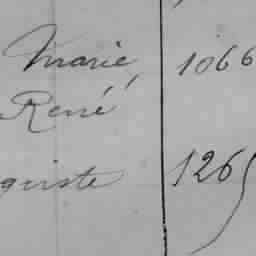 Marie, 1066
René
guste 1265